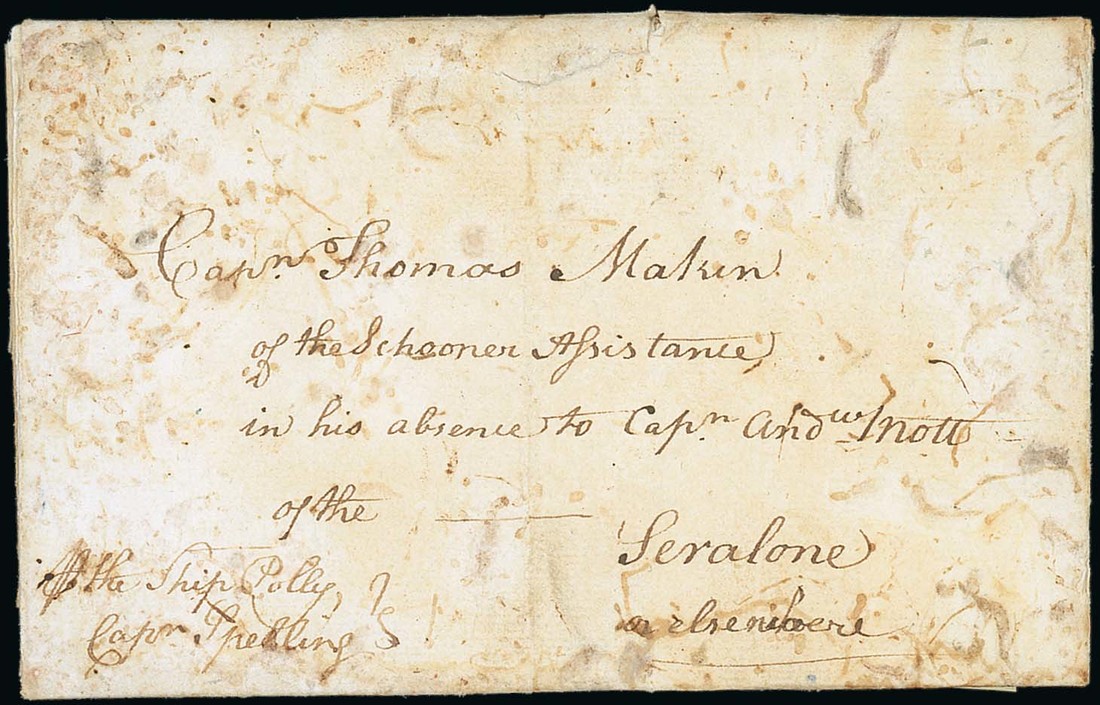 Capn. Thomas Makin
of the Schooner Assistance
in his absence to Capn. Andw. Mott
of the ———
Seralone
or elsewhere
⅌ the Ship Polly,
Capn. Spelling